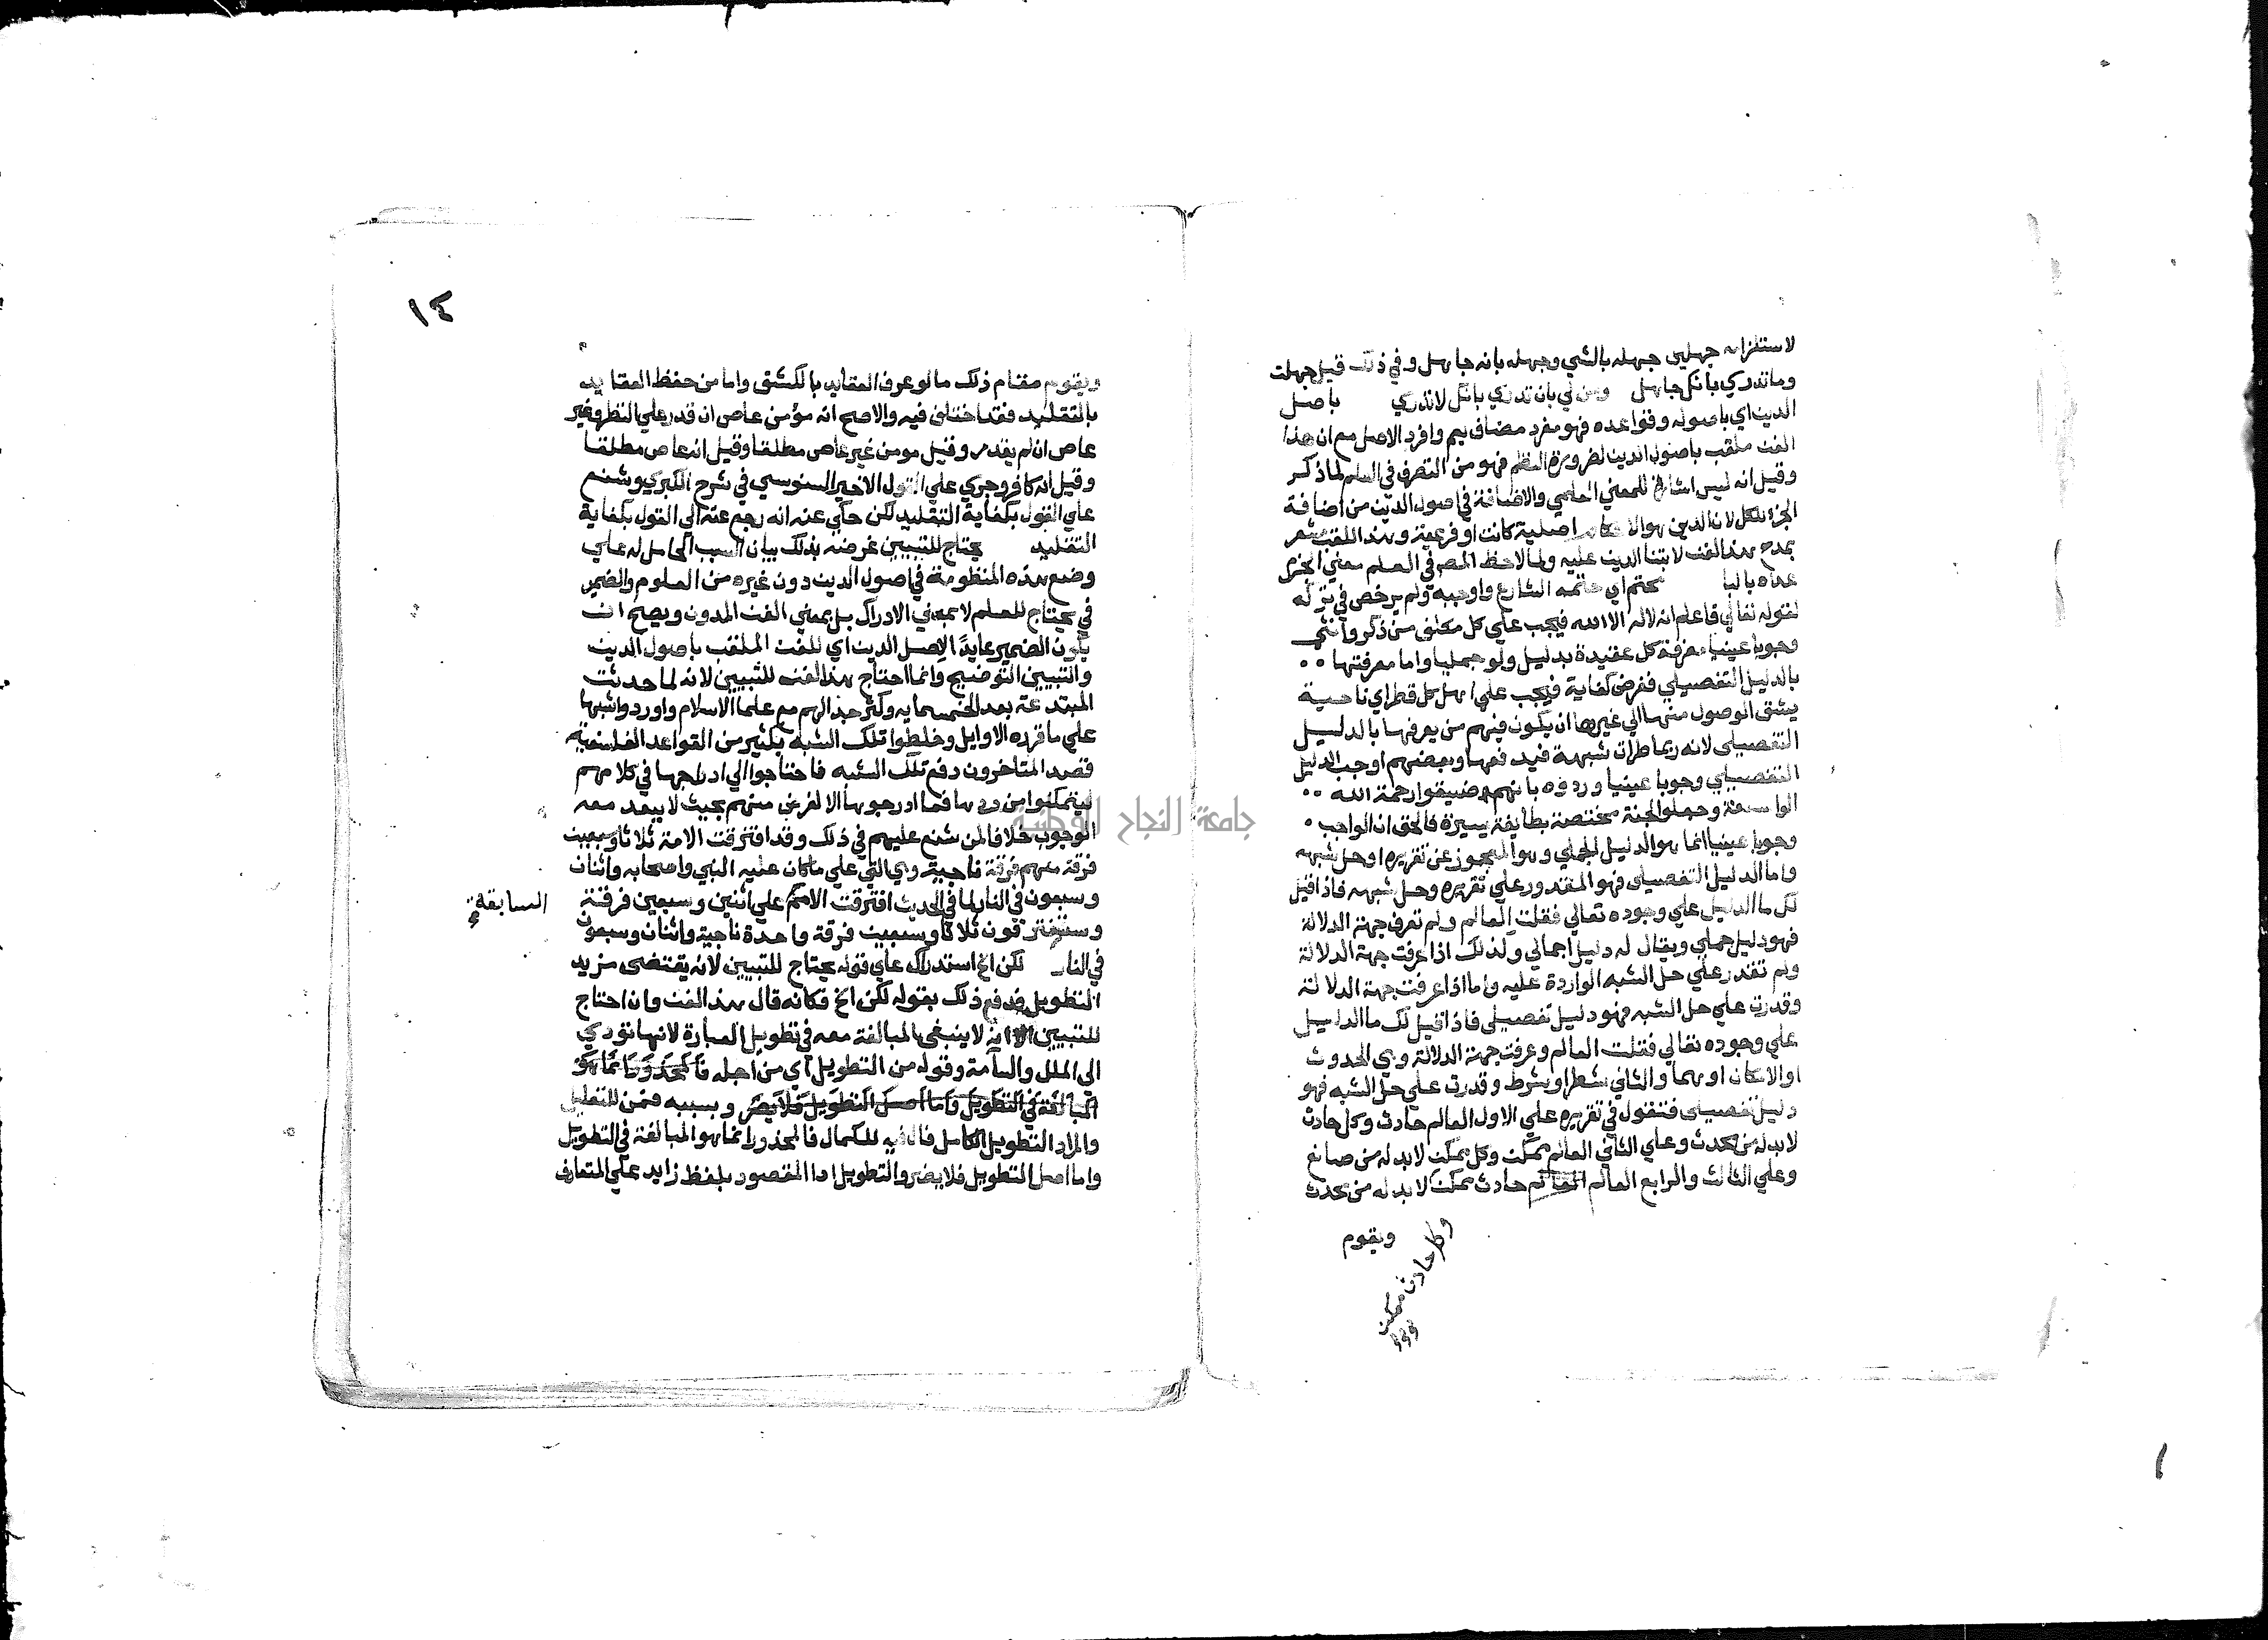 لاستلزامه جهلين جهله بالشي وجهله بانه جاهل وفي ذلك قيل جهلت
وما تدري بانك جاهل ومن لي بان تدري بانك لا تدري باصل
الدين اي باصوله وقواعده فهو مفرد مضاف يعم وافرد الاصل مع ان هذا
الفن ملقب باصول الدين لضرورة النظم فهو من التصرف في العلم لما ذكر
وقيل انه ليس اشارة للمعني العلمي والاضافة في اصول الدين من اضافة
الجزء للكل لان الدين هو الاحكام اصلية كانت او فرعية وهذا اللقب مشعر
بمدح هذا الفن لابتنا الدين عليه ولما لاحظ المص في العلم معني الجزم
عداه بالبا محتم اي حتمه الشارع واوجبه ولم يرخص في تركه
لقوله تعالي فاعلم انه لا اله الا الله فيجب علي كل مكلف من ذكر وانثي
وجوبا عينيا معرفة كل عقيدة بدليل ولو جمليا واما معرفتها
بالدليل التفصيلي ففرض كفاية فيجب علي اهل كل قطر اي ناحية
يشق الوصول منها الي غيرها ان يكون فيهم من يعرفها بالدليل
التفصيلي لانه ربما طرات شبهة فيدفعها وبعضهم اوجب الدليل
التفصيلي وجوبا عينيا وردوه بانهم ضيقوا رحمة الله
الواسعة وجعلوا الجنة مختصة بطايفة يسيرة فالحق ان الواجب
وجوبا عينيا انما هو الدليل الجملي وهو المعجوز عن تقريره او حل شبهه
واما الدليل التفصيلي فهو المقدور علي تقريره وحل شبهه فاذا قيل
لك ما الدليل علي وجوده تعالي فقلت العالم ولم تعرف جهة الدلالة
فهو دليل جملي ويقال له دليل اجمالي ولذلك اذا عرفت جهة الدلالة
ولم تقدر علي حل الشبه الواردة عليه واما اذا عرفت جهة الدلالة
وقدرت علي حل الشبه فهو دليل تفصيلي فاذا قيل لك ما الدليل
علي وجوده تعالي فقلت العالم وعرفت جهة الدلالة وهي الحدوث
او الامكان او هما والثاني شطر او شرط وقدرت علي حل الشبه فهو
دليل تفصيلي فتقول في تقريره علي الاول العالم حادث وكل حادث
لا بد له من محدث وعلي الثاني العالم ممكن وكل ممكن لا بد له من صانع
وعلي الثالث والرابع العالم حادث ممكن لا بد له من محدث
وكل حادث ممكن
ويقوم
١٤
ويقوم مقام ذلك ما لو عرف العقايد بالكشف واما من حفظ العقايد
بالتقليد فقد اختلف فيه والاصح انه مؤمن عاص ان قدر علي النظر وغير
عاص ان لم يقدر وقيل مومن غير عاص مطلقا وقيل انه عاص مطلقا
وقيل انه كافر وجري علي القول الاخير السنوسي في شرح الكبري وشنع
علي القول بكفاية التقليد لكن حكي عنه انه رجع عنه الي القول بكفاية
التقليد يحتاج للتبيين غرضه بذلك بيان السبب الحامل له علي
وضع هذه المنظومة في اصول الدين دون غيره من العلوم والضمير
في يحتاج للعلم لا بمعني الادراك بل بمعني الفن المدون ويصح ان
يكون الضمير عايدا لاصل الدين اي للفن الملقب باصول الدين
والتبيين التوضيح وانما احتاج هذا الفن للتبيين لانه لما حدثت
المبتدعة بعد الخمسمايه وكثر جدالهم مع علما الاسلام واوردوا شبها
علي ما قرره الاوايل وخلطوا تلك الشبه بكثير من القواعد الفلسفية
قصد المتاخرون دفع تلك الشبه فاحتاجوا الي ادراجها في كلامهم
ليتمكنوا من ردها فما ادرجوها الا لغرض منهم بحيث لا يبعد معه
الوجوب خلافا لمن شنع عليهم في ذلك وقد افترقت الامة ثلاثا وسبعين
فرقة منهم فرقة ناجية وهي التي علي ما كان عليه النبي واصحابه واثنان
وسبعون في النار لما في الحديث افترقت الامم علي اثنين وسبعين فرقة
السابقة
وستفترقون ثلاثا وسبعين فرقة واحدة ناجية واثنان وسبعون
في النار لكن الخ استدراك علي قوله يحتاج للتبيين لانه يقتضي مزيد
التطويل فدفع ذلك بقوله لكن الخ فكانه قال هذا الفن وان احتاج
للتبيين الا انه لا ينبغي المبالغة معه في تطويل العبارة لانها تؤدي
الي الملل والسآمة وقوله من التطويل اي من اجله فالمحذور انما هو
المبالغة في التطويل واما اصل التطويل فلا يضر وبسببه فمن للتعليل
والمراد التطويل الكامل فال فيه للكمال فالمحذور انما هو المبالغة في التطويل
واما اصل التطويل فلا يضر والتطويل ادا المقصود بلفظ زايد علي المتعارف
جامعة النجاح الوطنية